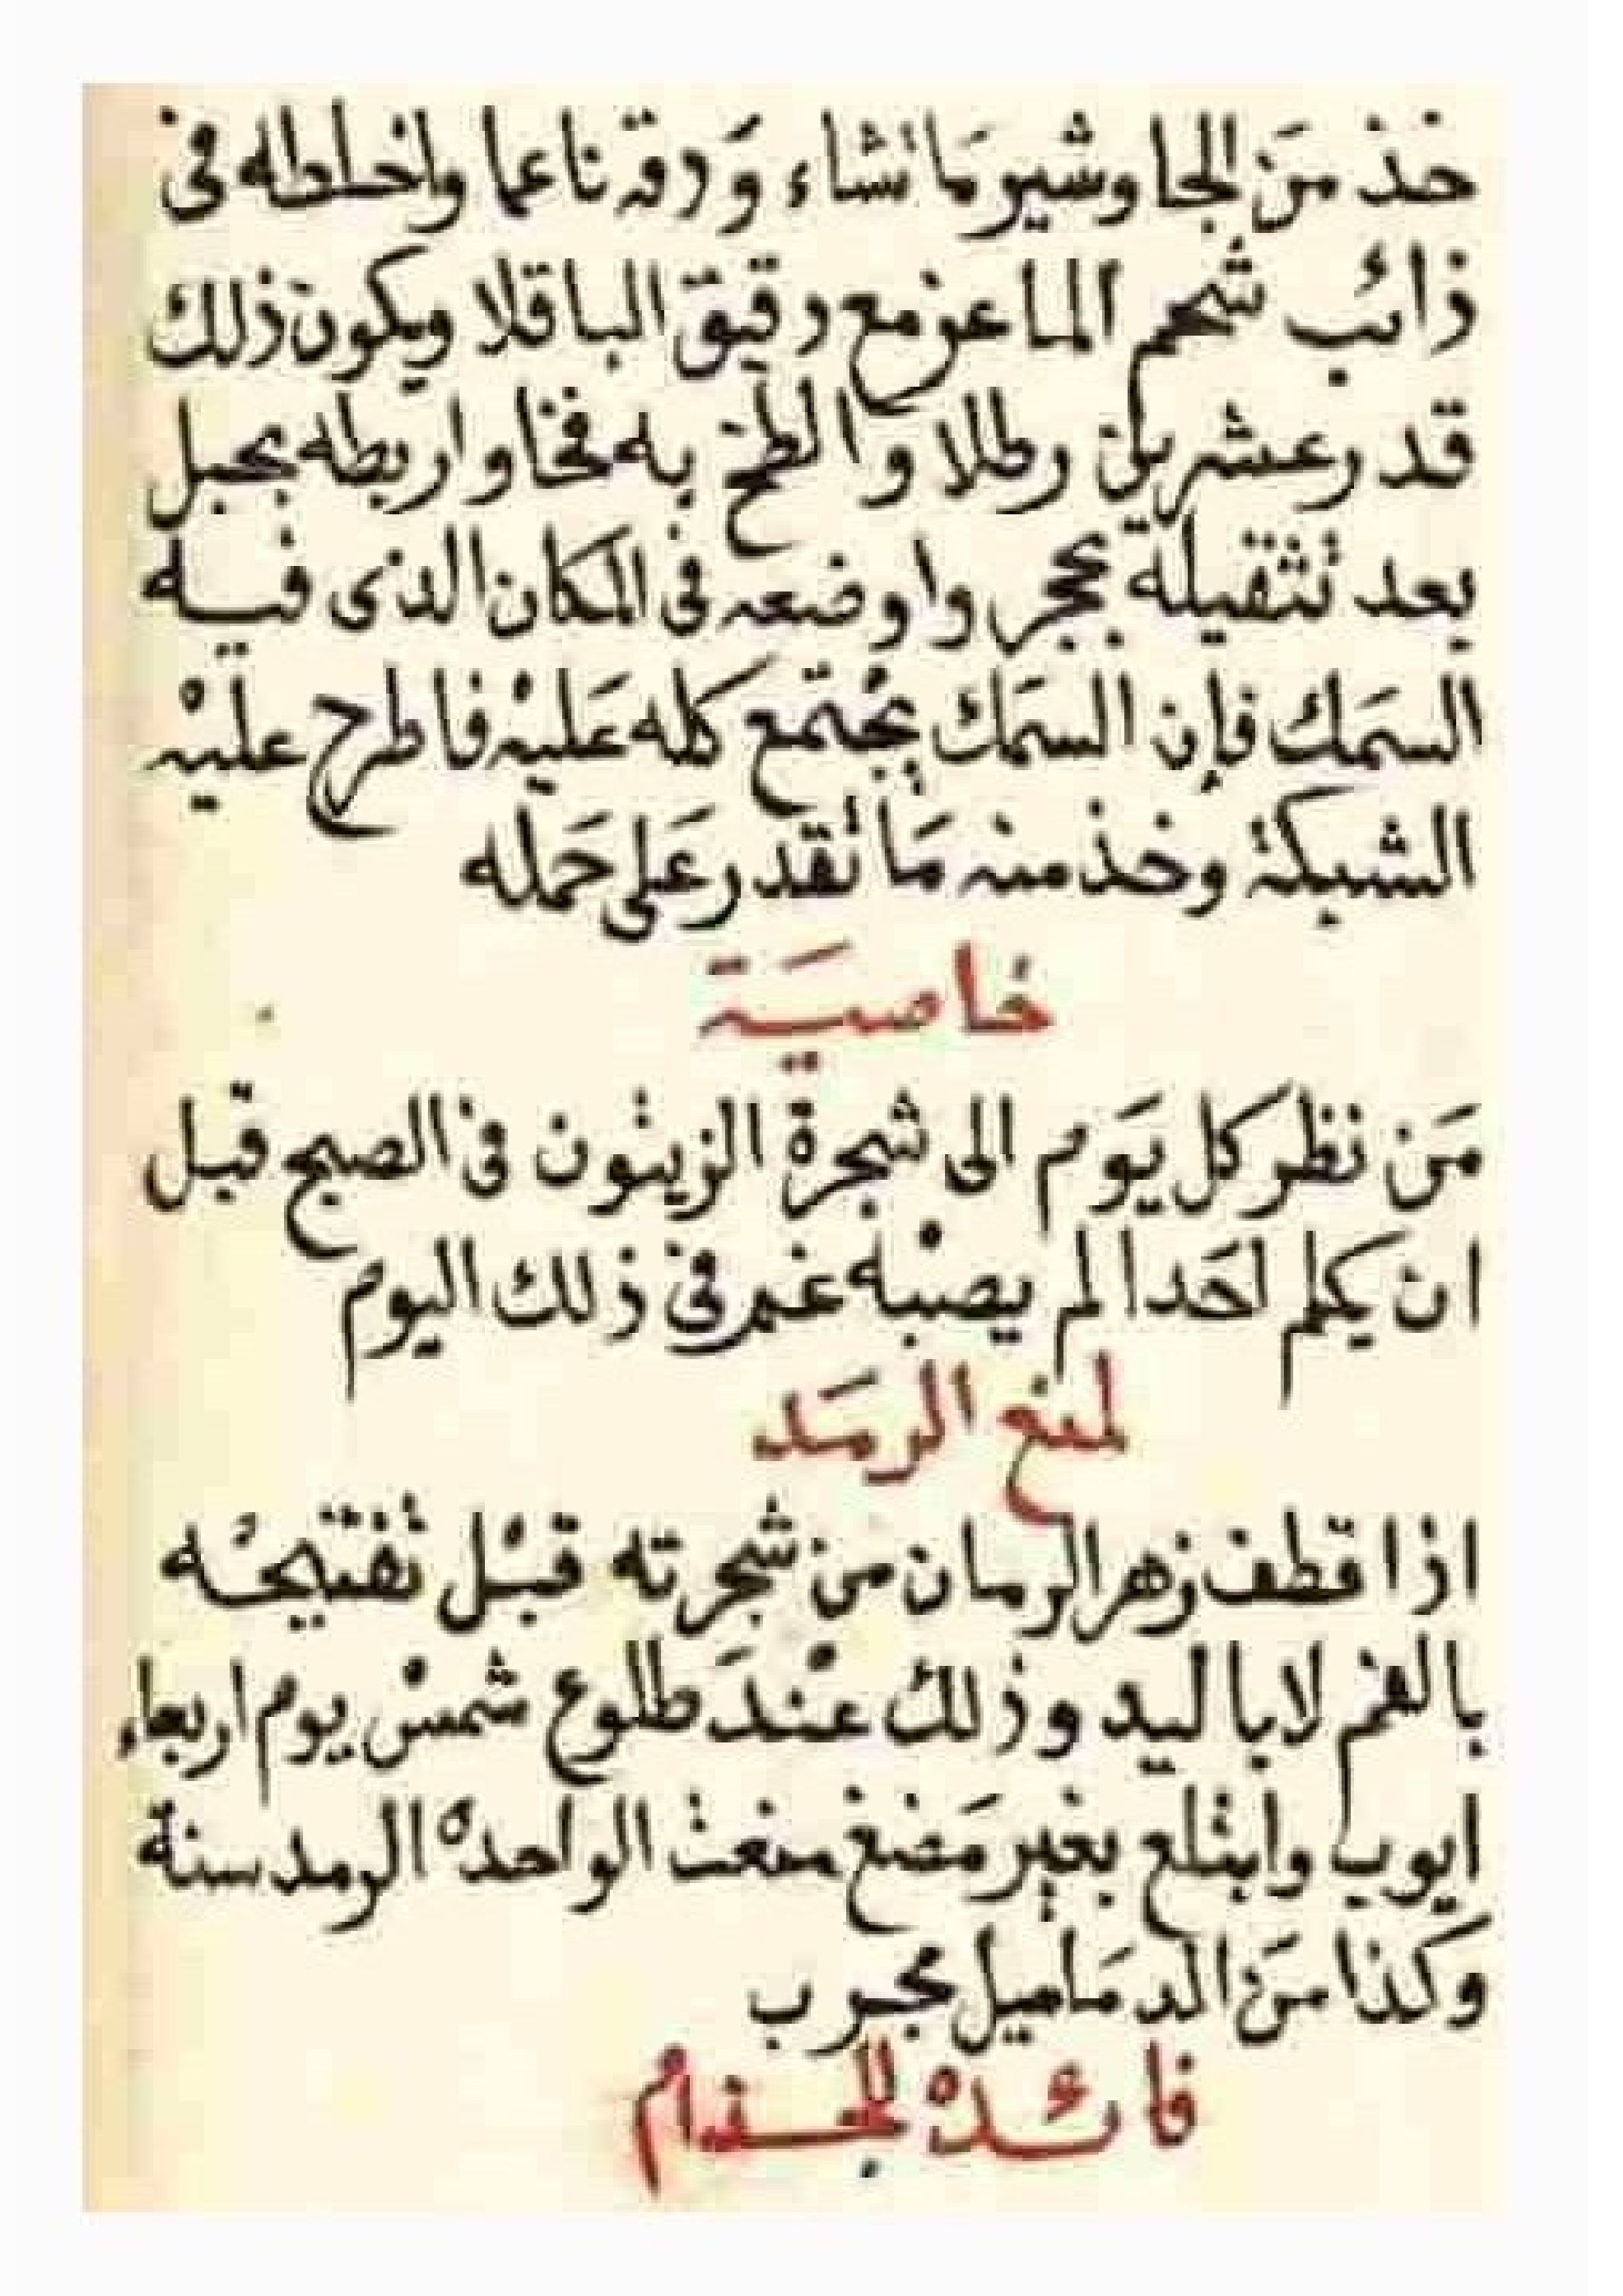 خذ مَن الجاوشير مَا تشاء وَ دقه ناعما واخلطه في
ذائب شحم الماعز مع دقيق الباقلا ويكون ذلك
قدر عشرين رطلا والطخ به فخا واربطه بحبل
بعد تثقيلة بحجر واوضعه فى المكان الذى فيه
السمَك فإن السمَك يجْتمع كله عَليْه فاطرح عليْه
الشبكة وخذ منه مَا تقدر عَلى حَمله
خاصيَة
مَن نظر كل يَوم الى شجرة الزيتون فى الصبح قبل
ان يكلم احَدا لم يصبْه غم فى ذلك اليوم
لمنع الرمَد
اذا قطف زهر الرمان من شجرته قبْل تفتيحُه
بالفم لا باليد وذلك عنْدَ طلوع شمسْ يوم اربعاء
ايوب وابتلع بغير مَضغ منعت الواحدة الرمد سنة
وَكذا مَن الدمَاميل مجرب
فائدة للجذام